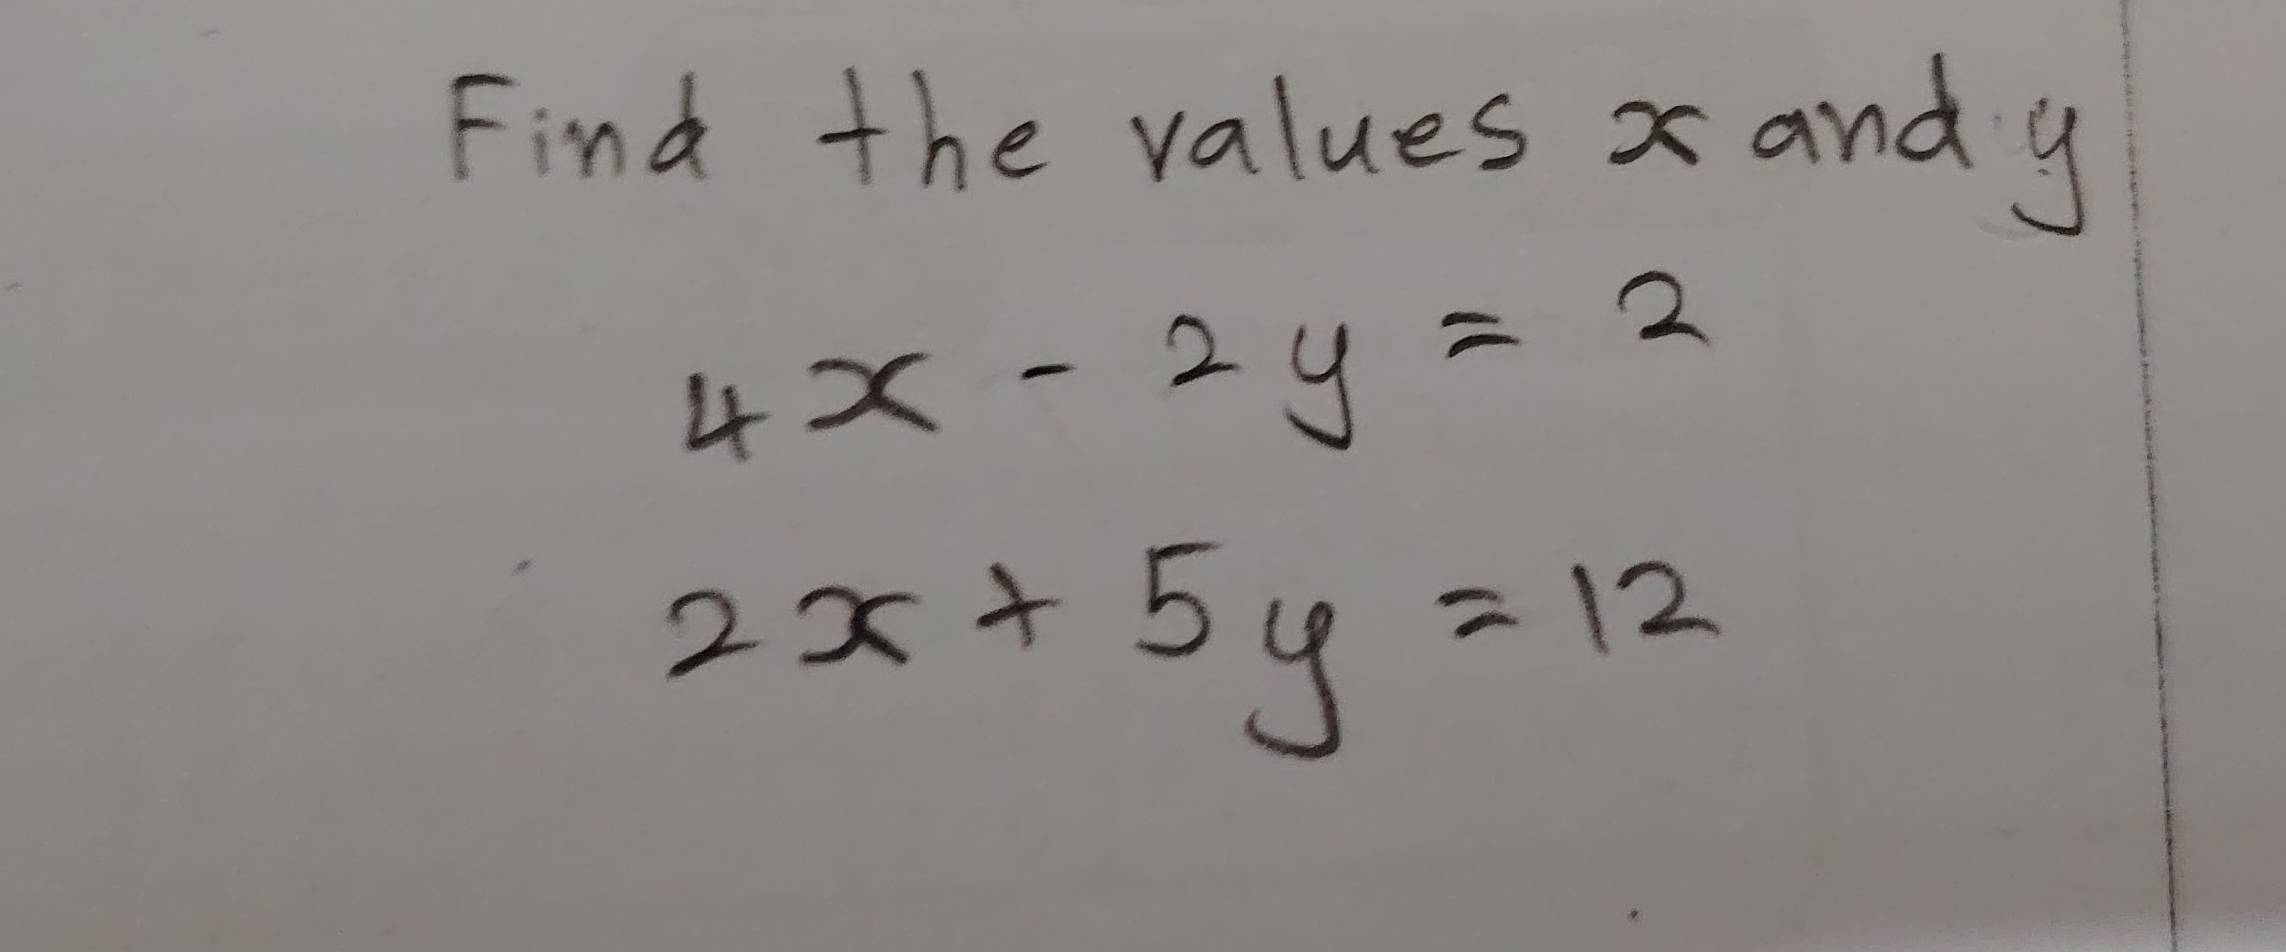 Find the values x and y
4x - 2y = 2
2x + 5y = 12